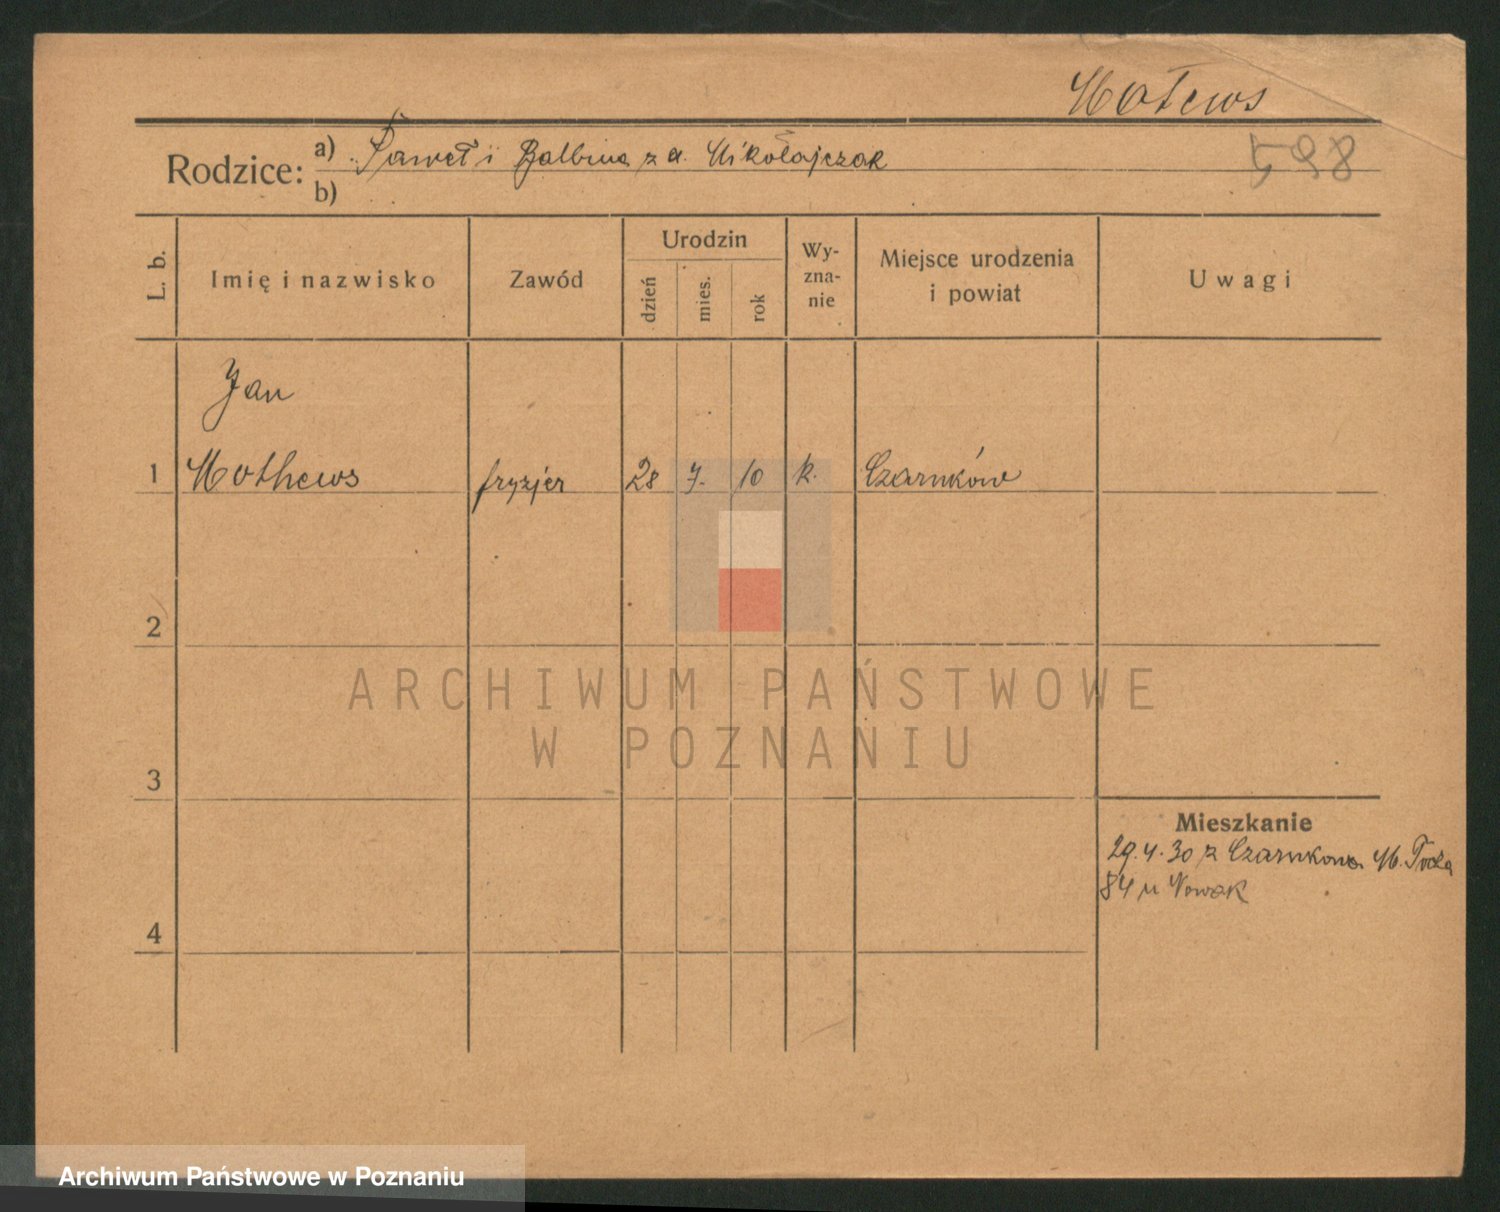 Matews
598
Rodzice: a) Paweł i Balbina z d. Mikołajczak
b)
L. b. Imię i nazwisko Zawód Urodzin dzień mies. rok Wy-zna-nie Miejsce urodzenia i powiat Uwagi
Jan
1 Mathews fryzjer 28 7. 10 k. Czarnków
2
ARCHIWUM PAŃSTWOWE
W POZNANIU
3
Mieszkanie
29.4.30 z Czarnkowa
84 u Nowak
4
Archiwum Państwowe w Poznaniu